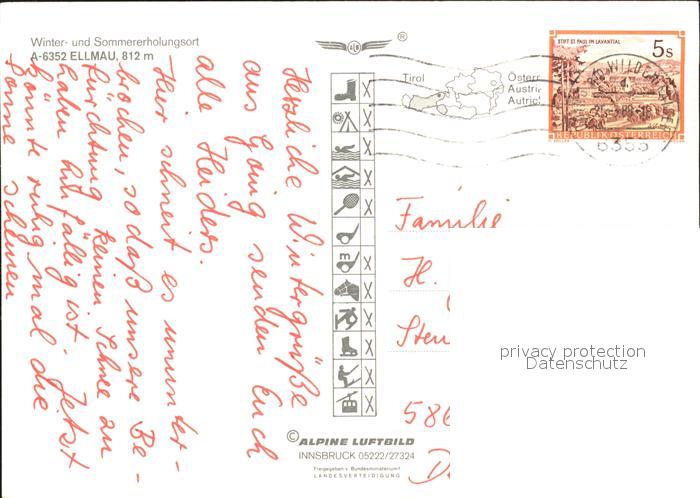 Winter- und Sommererholungsort
A-6352 ELLMAU, 812 m
Herzliche Wintergrüße
aus Going senden Euch
alle Heiders.
Hier schneit es ununter-
brochen, so daß unsere Be-
fürchtung keinen Schnee zu
haben hinfällig ist. Jetzt
könnte ruhig mal die
Sonne scheinen
®
Tirol
Österr
Austri
Autric
STIFT ST. PAUL IM LAVANTTAL
5s
REPUBLIK ÖSTERREICH
6353
m
Familie
H.
Stein
586
D
privacy protection
Datenschutz
© ALPINE LUFTBILD
INNSBRUCK 05222/27324
Freigegeben v. Bundesministerium f.
LANDESVERTEIDIGUNG